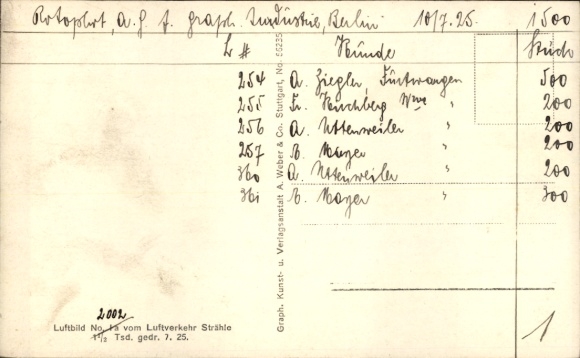 Rotophot, A.G. f. graph. Industrie, Berlin 10/7.25. 1500
Lr # Kunde Stück
254 A. Ziegler, Furtwangen 500
255 Fr. Kirchberg Wwe " 200
256 A. Uttenweiler " 200
257 E. Mayer " 200
360 A. Uttenweiler " 200
361 E. Mayer " 300
Graph. Kunst- u. Verlagsanstalt A. Weber & Co. Stuttgart, No. 56235
2002
Luftbild No. 1a vom Luftverkehr Strähle
1½ Tsd. gedr. 7. 25.
1